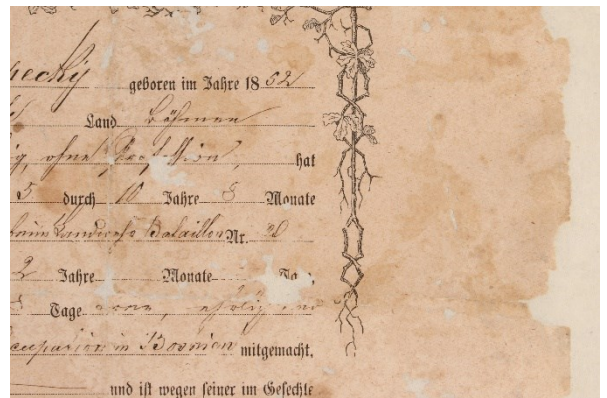 pecký geboren im Jahre 1852
Land Böhmen
ig, ohne Profession, hat
3 durch 10 Jahre 8 Monate
beim Landwehr Bataillon Nr.
2 Jahre Monate Tage,
Tage brav, ehrlich und
ccupation in Bosnien mitgemacht,
und ist wegen seiner im Gefechte